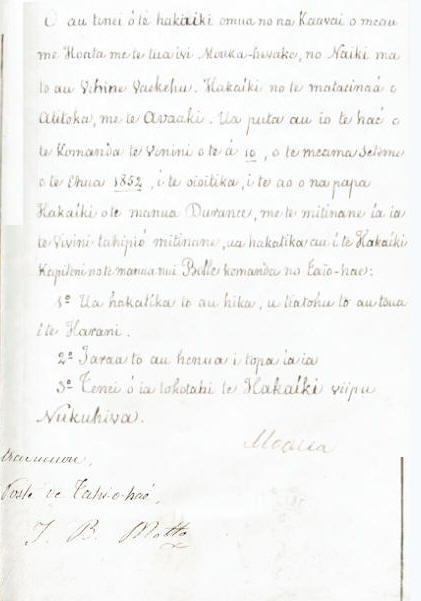 O au tenei ó te hakaiki omua no na Kaavai o meau
me Hoata me te tua ivi Mouka-hevake, no Naiki ma
to au Vehine Vaekehu. Hakaiki no te mataeinaá o
Atitoka, me te Avaaki. Ua puta au io te haé o
te Komanda te Vinini o te á 10, o te meama Seteme
o te Ehua 1852, i te oioitika, i te ao o na papa
Hakaiki o te manua Durance, me te mitinane ia ia
te Vivini tahipió mitinane, ua hakatika au i te Hakaiki
Kapiteni no te manua nui Belle komanda no Taio-hae:
1º Ua hakatika to au hika, u tiatohu to au toua
i te Harani.
2º Iaraa to au henua i topa ia ia
3º Tenei ó ia tokotahi te Hakaiki viipu
Nukuhiva.
Moana
Poste de Tahi-o-haé.
J. B.